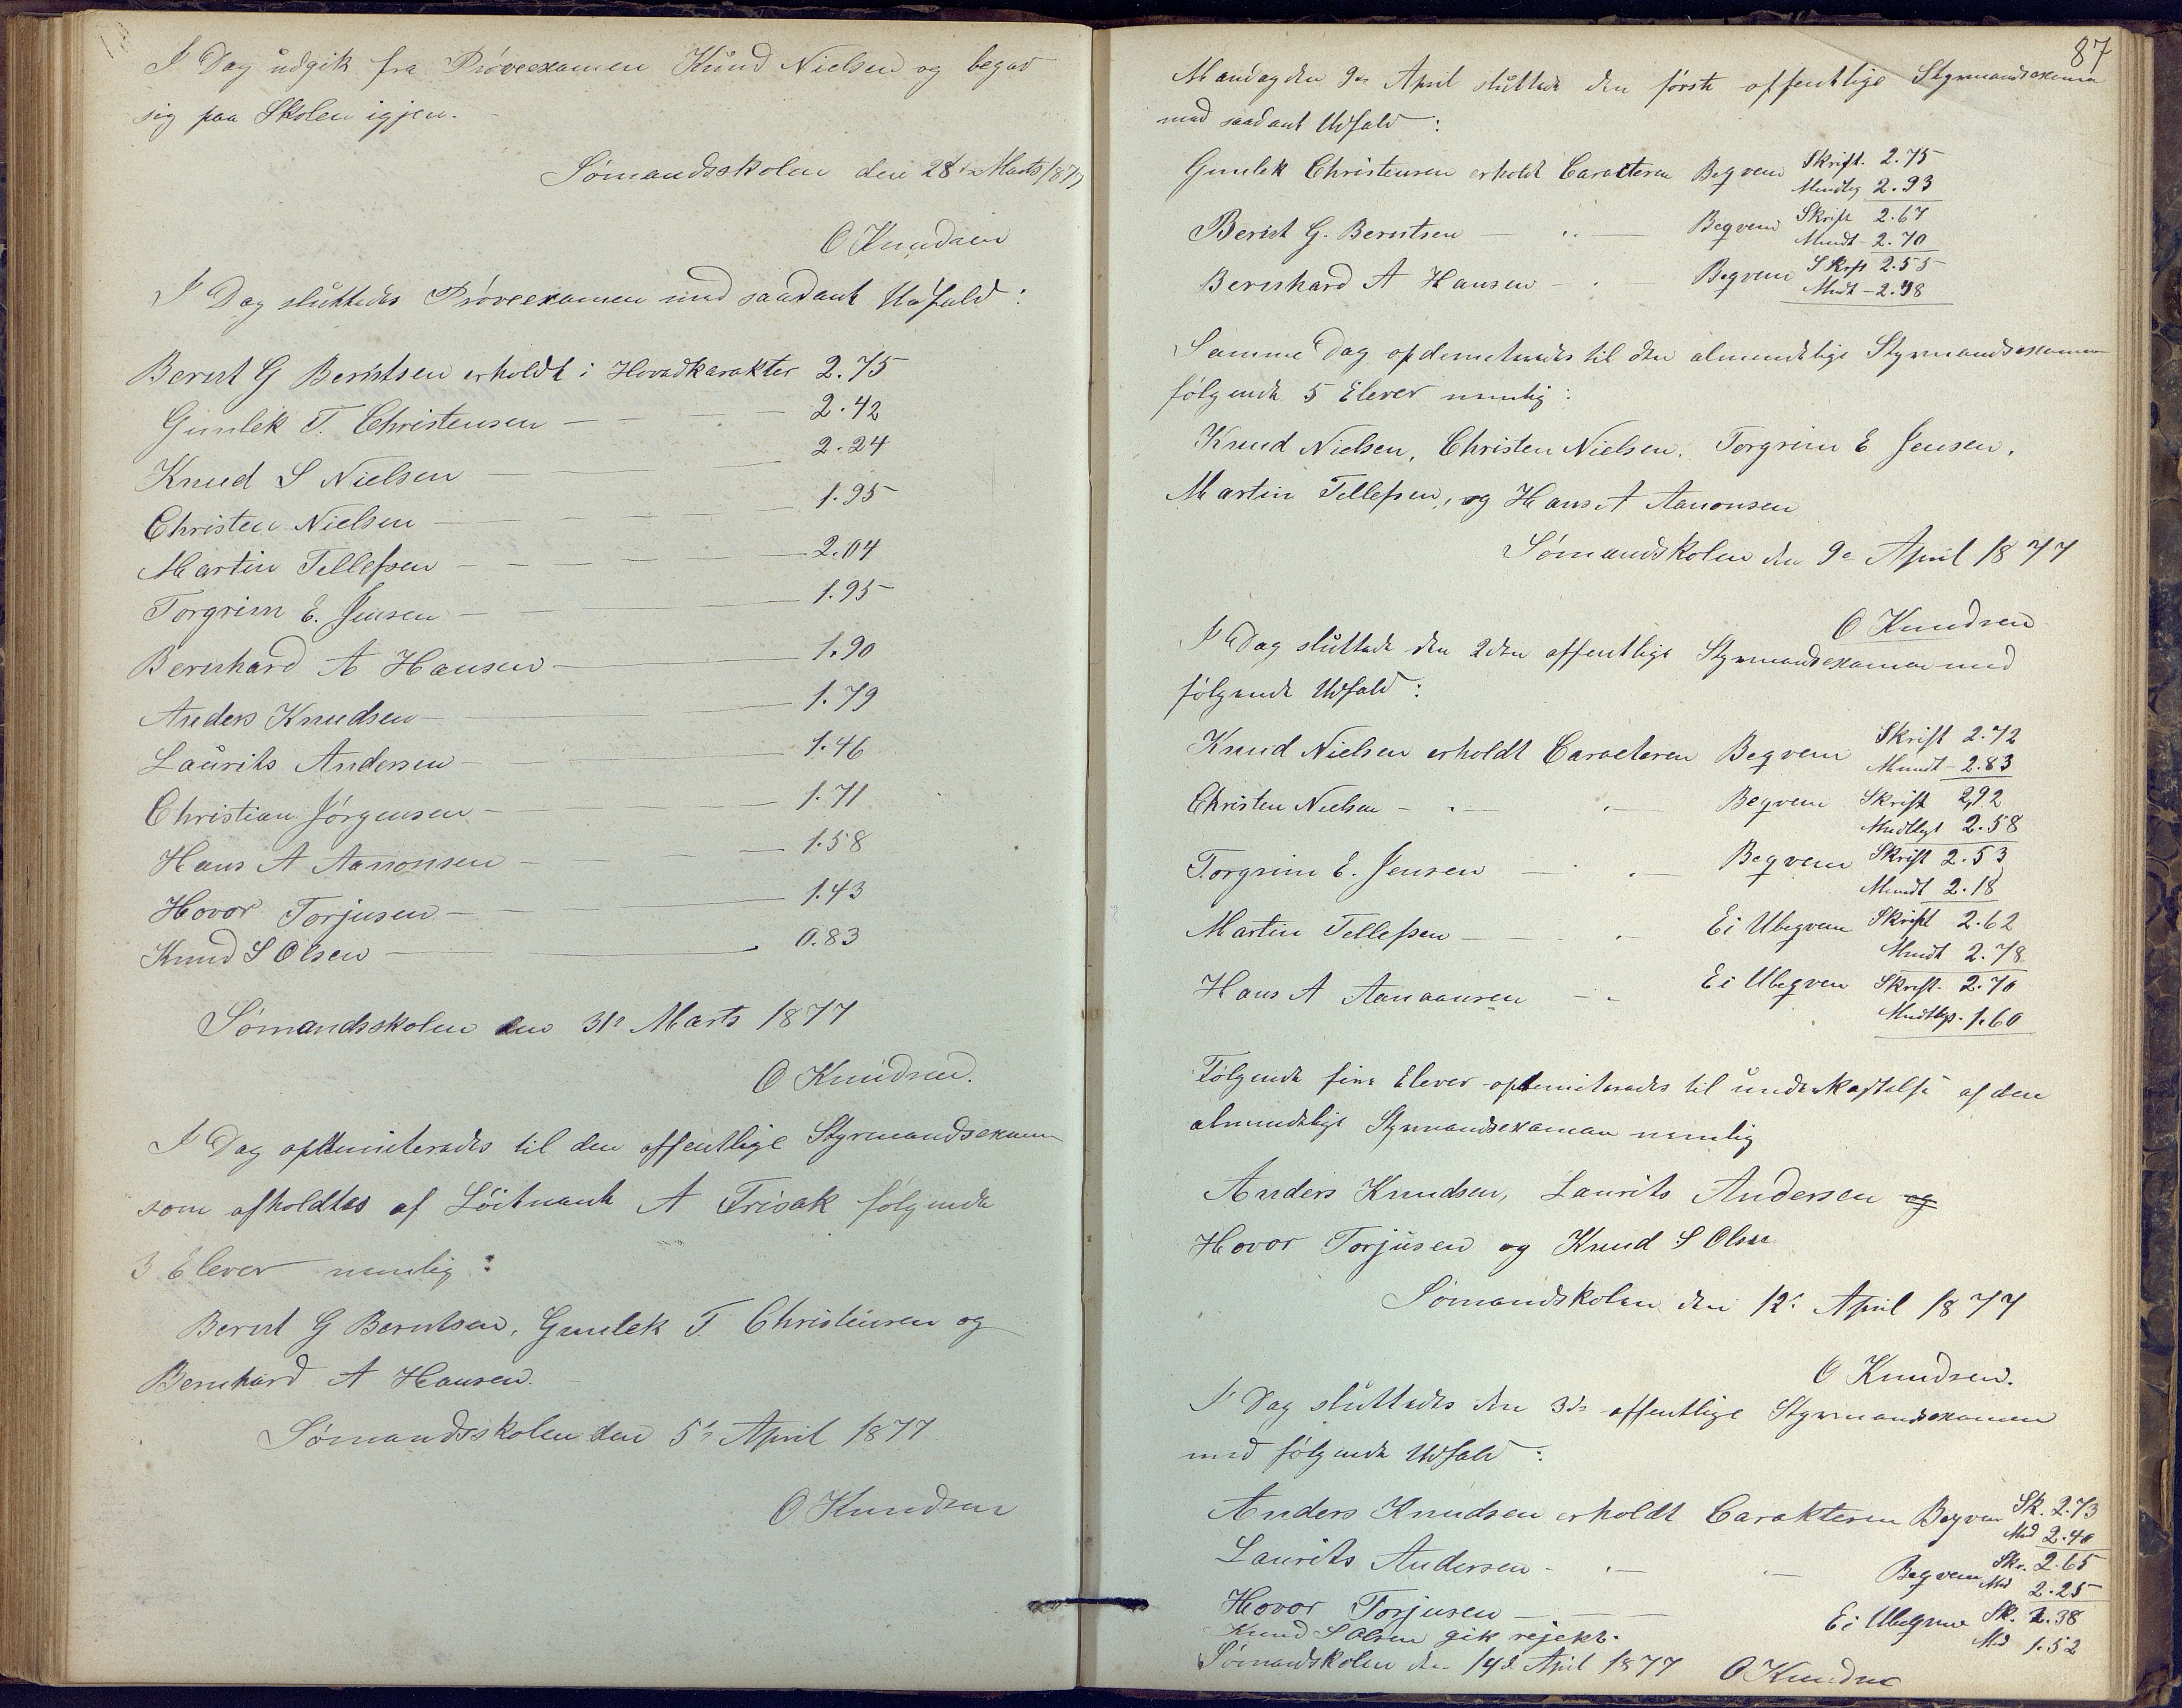 I Dag udgik fra Prøveexamen Knud Nielsen og begav
sig paa Skolen igjen.
Sømandsskolen den 28de Marts 1877
O Knudsen
I Dag sluttedes Prøveexamen med saadant Udfald:
Bernt G Berntsen erholdt i Hovedkarakter 2.75
Gunlek T. Christensen — — — 2.42
Knud S Nielsen — — 2.24
Christen Nielsen — — — 1.95
Martin Tellefsen — — — 2.04
Torgrim E. Jensen — — — 1.95
Bernhard A Hansen — — 1.90
Anders Knudsen — — 1.79
Laurits Andersen — — 1.46
Christian Jörgensen — — 1.71
Hans A Aanonsen — — 1.58
Hovor Torjusen — — 1.43
Knud S Olsen — — 0.83
Sømandsskolen den 31e Marts 1877
O Knudsen.
I Dag opdemiteredes til den offentlige Styrmandsexamen
som afholdtes af Löitnant A Frisak følgende
3 Elever nemlig:
Bernt G Berntsen, Gunlek T Christensen og
Bernhard A Hansen.
Sømandsskolen den 5e April 1877
O Knudsen
87
Mandag den 9de April sluttede den første offentlige Styrmandsexamen
med saadant Udfald:
Gunlek Christensen erholdt Caracteren Beqvem Skrift. 2.75
Mundtlig 2.93
Bernt G. Berntsen — " — Beqvem Skrift 2.67
Mundt - 2.70
Bernhard A Hansen - " Beqvem Skrft 2.55
Mndt - 2.98
Samme Dag opdemiteredes til den almindelige Styrmandsexamen
følgende 5 Elever nemlig:
Knud Nielsen, Christen Nielsen, Torgrim E Jensen,
Martin Tellefsen, og Hans A Aanonsen
Sømandskolen den 9e April 1877
O Knudsen
I Dag sluttede den 2den offentlige Styrmandsexamen med
følgende Udfald:
Knud Nielsen erholdt Caracteren Beqvem Skrift 2.72
Mundt - 2.83
Christen Nielsen - " — " — Beqvem Skrift 2,92
Mndtligt 2.58
Torgrim E. Jensen — " " — Beqvem Skrift 2.53
Mundt 2.18
Martin Tellefsen — — " — Ei Ubeqvem Skrift 2.62
Mundt 2.78
Hans A Aanaansen - - Ei Ubeqvem Skrift - 2.70
Mndtlgt - 1.60
Følgende fire Elever opdemiteredes til underkastelse af den
almindelige Styrmandsexamen nemlig
Anders Knudsen, Laurits Andersen og
Hovor Torjusen og Knud S Olsen
Sømandskolen den 12e April 1877
O Knudsen.
I Dag sluttedes den 3de offentlige Styrmandsexamen
med følgende Udfald:
Anders Knudsen erholdt Carakteren Beqvem Sk. 2.73
Md 2.40
Laurits Andersen - " — " — Beqvem Skr. 2.65
Md 2.25
Hovor Torjusen — — — Ei Ubeqvem Sk. 2.38
Md 1.52
Knud S Olsen gik rejekt.
Sømandskolen den 14d April 1877 O Knudsen